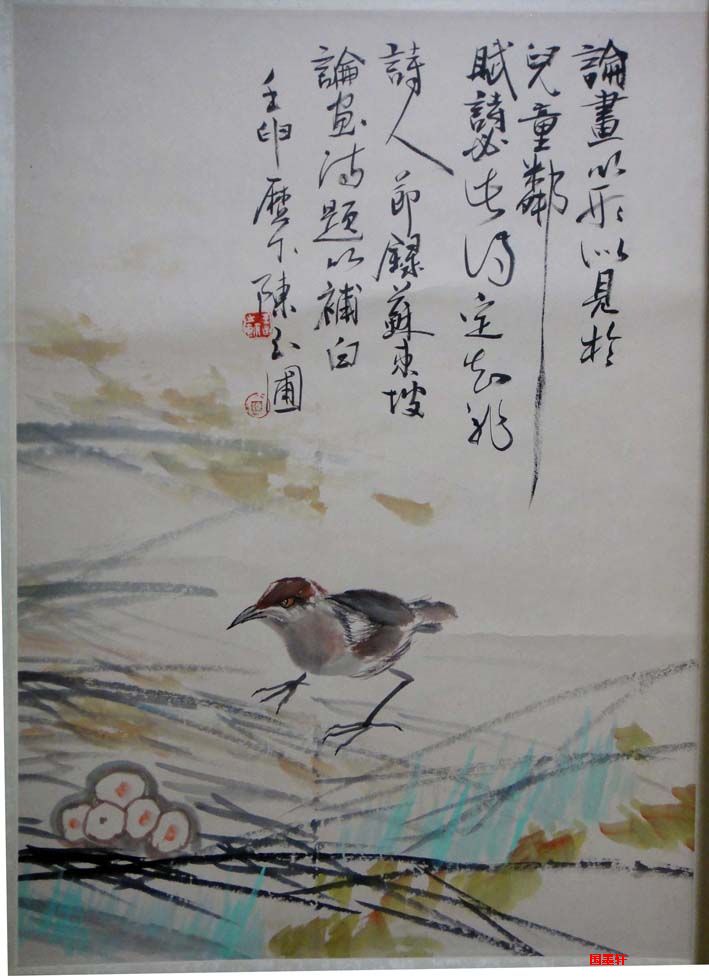 論畫以形似見於
兒童鄰
賦詩必此詩定知非
詩人 節錄蘇東坡
論畫詩題以補白
壬申歷下陳玉圃